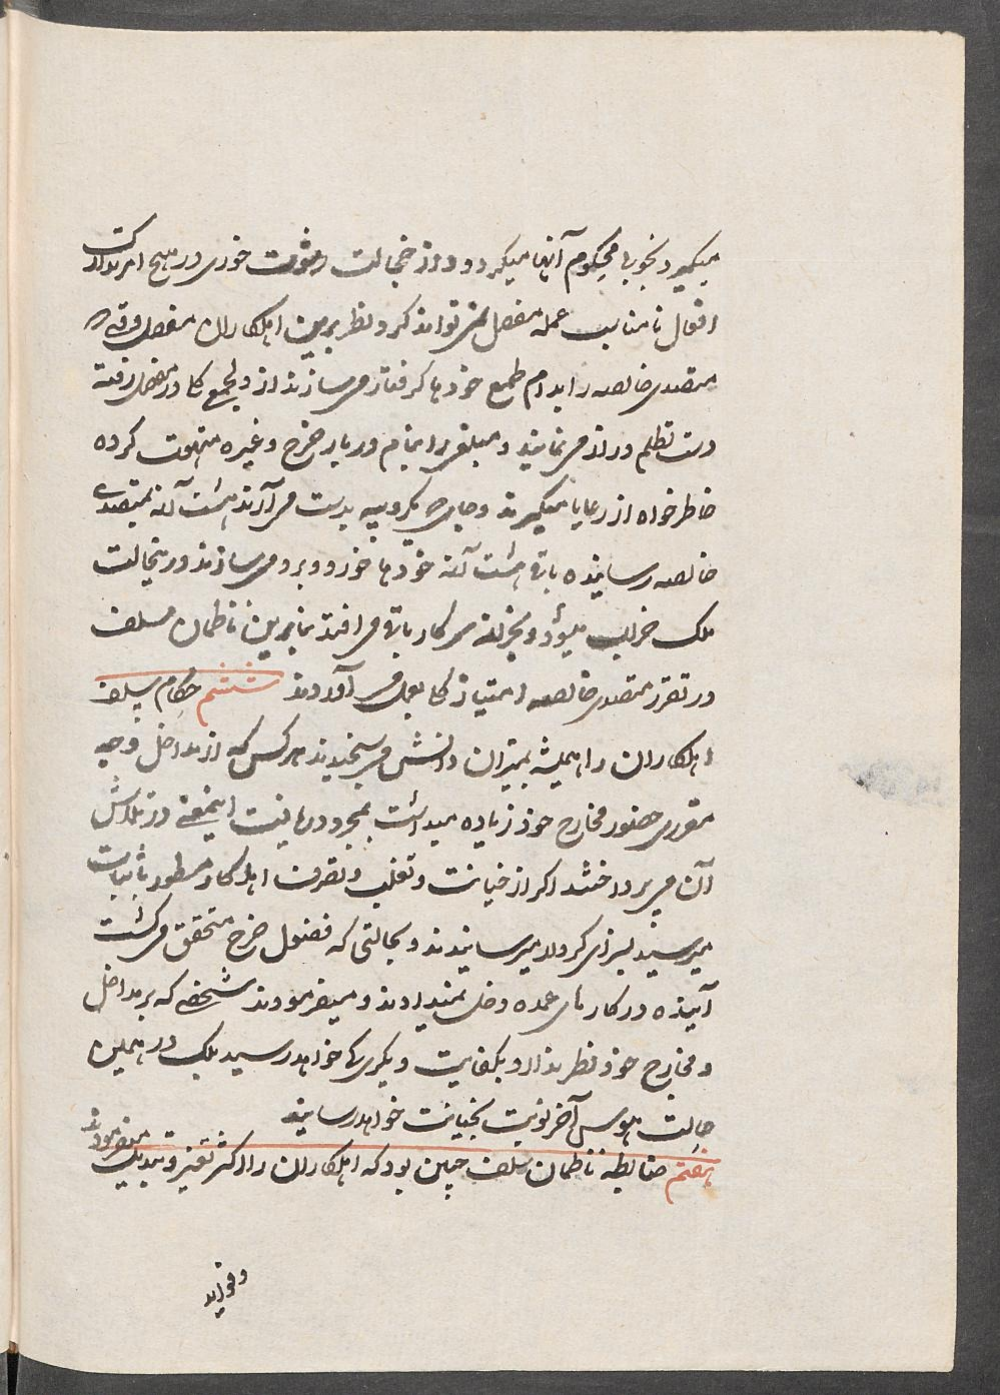 میکیرد بخوبی محکوم آنها میکردد و از خجالت رشوت خوری در هیچ امر تدارک
افعال نامناسب عمله مفصل نمی تواند کرد و نظر برین اهلکاران مفصل وقتیکه
متصدی خالصه را بدام طمع خودها کرفتار می سازند از دلجمعی کلی در مفصل رفته
دست تظلم دراز می نمایند و مبلغی بر انجام دربار خرج و غیره متهوت کرده
خاطر خواه از رعایا میکیرند و جای یکروپیه بدست می آرند هشت آنه بمتصدی
خالصه رسانیده باقی هشت آنه خودها خورد و برد می سازند درینحالت
ملک خراب میشود و بخزانه سرکار باقی می افتد بنابرین ناظمان سلف
در تقرر متصدی خالصه امتیاز کلی بعمل می آوردند ششم حکام سلف
اهلکاران را همیشه بمیزان دانش می سنجیدند هر کس که از مداخل وجه
مقرری حضور مخارج خود زیاده میداشت بمجرد دریافت اینمعنی در تلاش
آن می پرداختند اکر از خیانت و تغلب و تصرف اهلکار مسطور باثبات
میرسید بسزای کردار میرسانیدند و بحالتی که فضول خرج متحقق می کشت
آینده در کارهای عمده دخل نمیدادند و میفرمودند شخصی که بر مداخل
و مخارج خود نظر ندارد بکفایت دیکری کی خواهد رسید بلکه در همین
حالت هوس آخر نوبت بخیانت خواهد رسانید
هفتم ضابطه ناظمان سلف چنین بود که اهلکاران را اکثر تغیر و تبدیل میفرمودند
و فواید